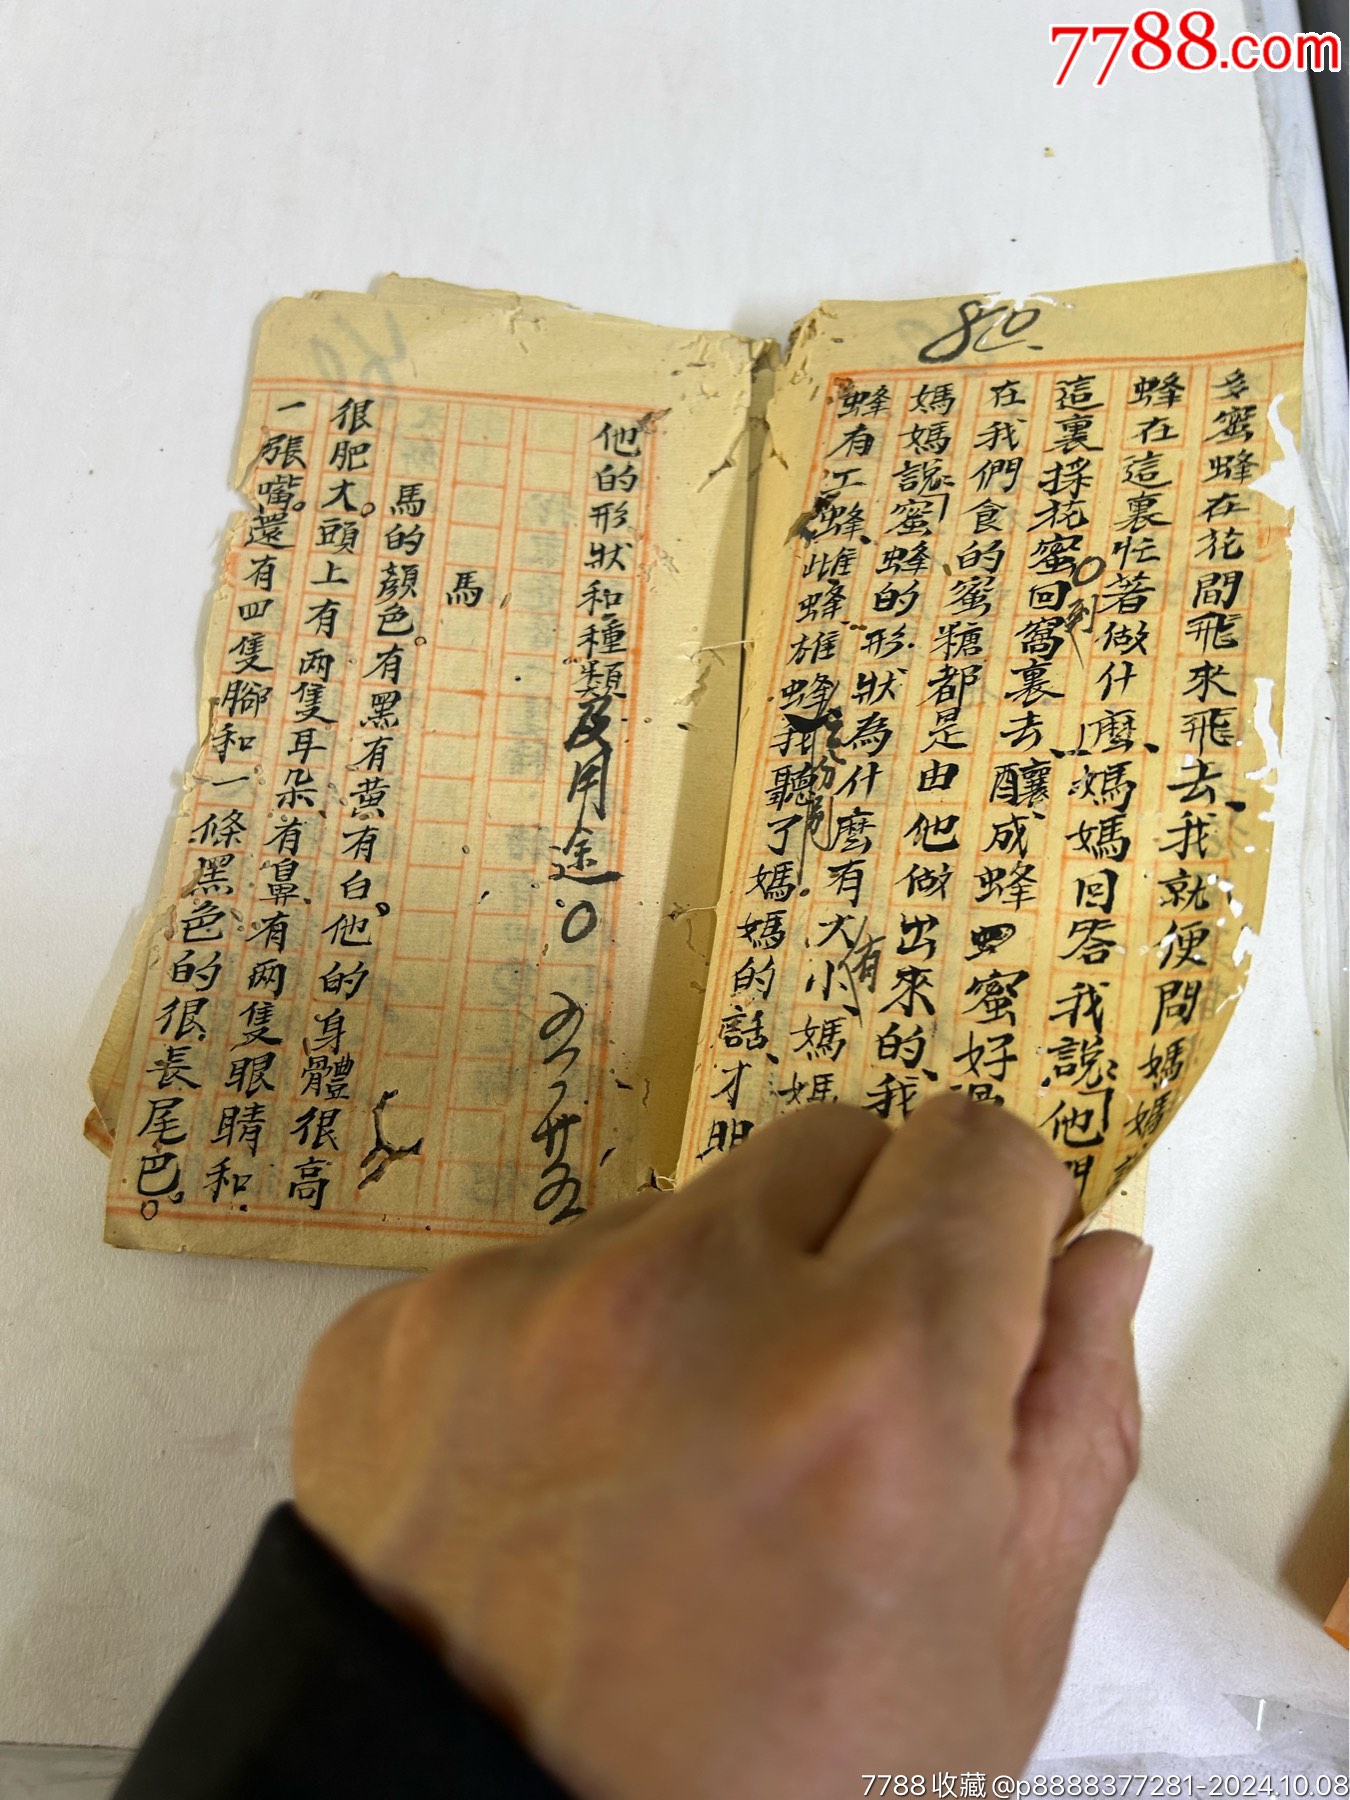 7788.com
80.
多蜜蜂在花間飛來飛去、我就便問媽媽
蜂在這裏忙著做什麼、媽媽回答我說:「他們
這裏採花蜜回到窩裏去、釀成蜂蜜好
在我們食的蜜糖都是由他做出來的、我
媽媽說:「蜜蜂的形狀為什麼有大有小、媽媽
蜂有工蜂雌蜂雄蜂之分別。我聽了媽媽的話、才明
他的形狀和種類及用途。
馬
馬的顏色。有黑有黃有白。他的身體很高
很肥大。頭上有两隻耳朵、有鼻、有两隻眼睛和
一張嘴。還有四隻腳和一條黑色的很長尾巴。
7788收藏@p8888377281-2024.10.08